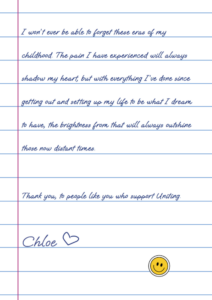 I won't ever be able to forget these eras of my
childhood. The pain I have experienced will always
shadow my heart, but with everything I've done since
getting out and setting up my life to be what I dream
to have, the brightness from that will always outshine
those now distant times.
Thank you, to people like you who support Uniting.
Chloe